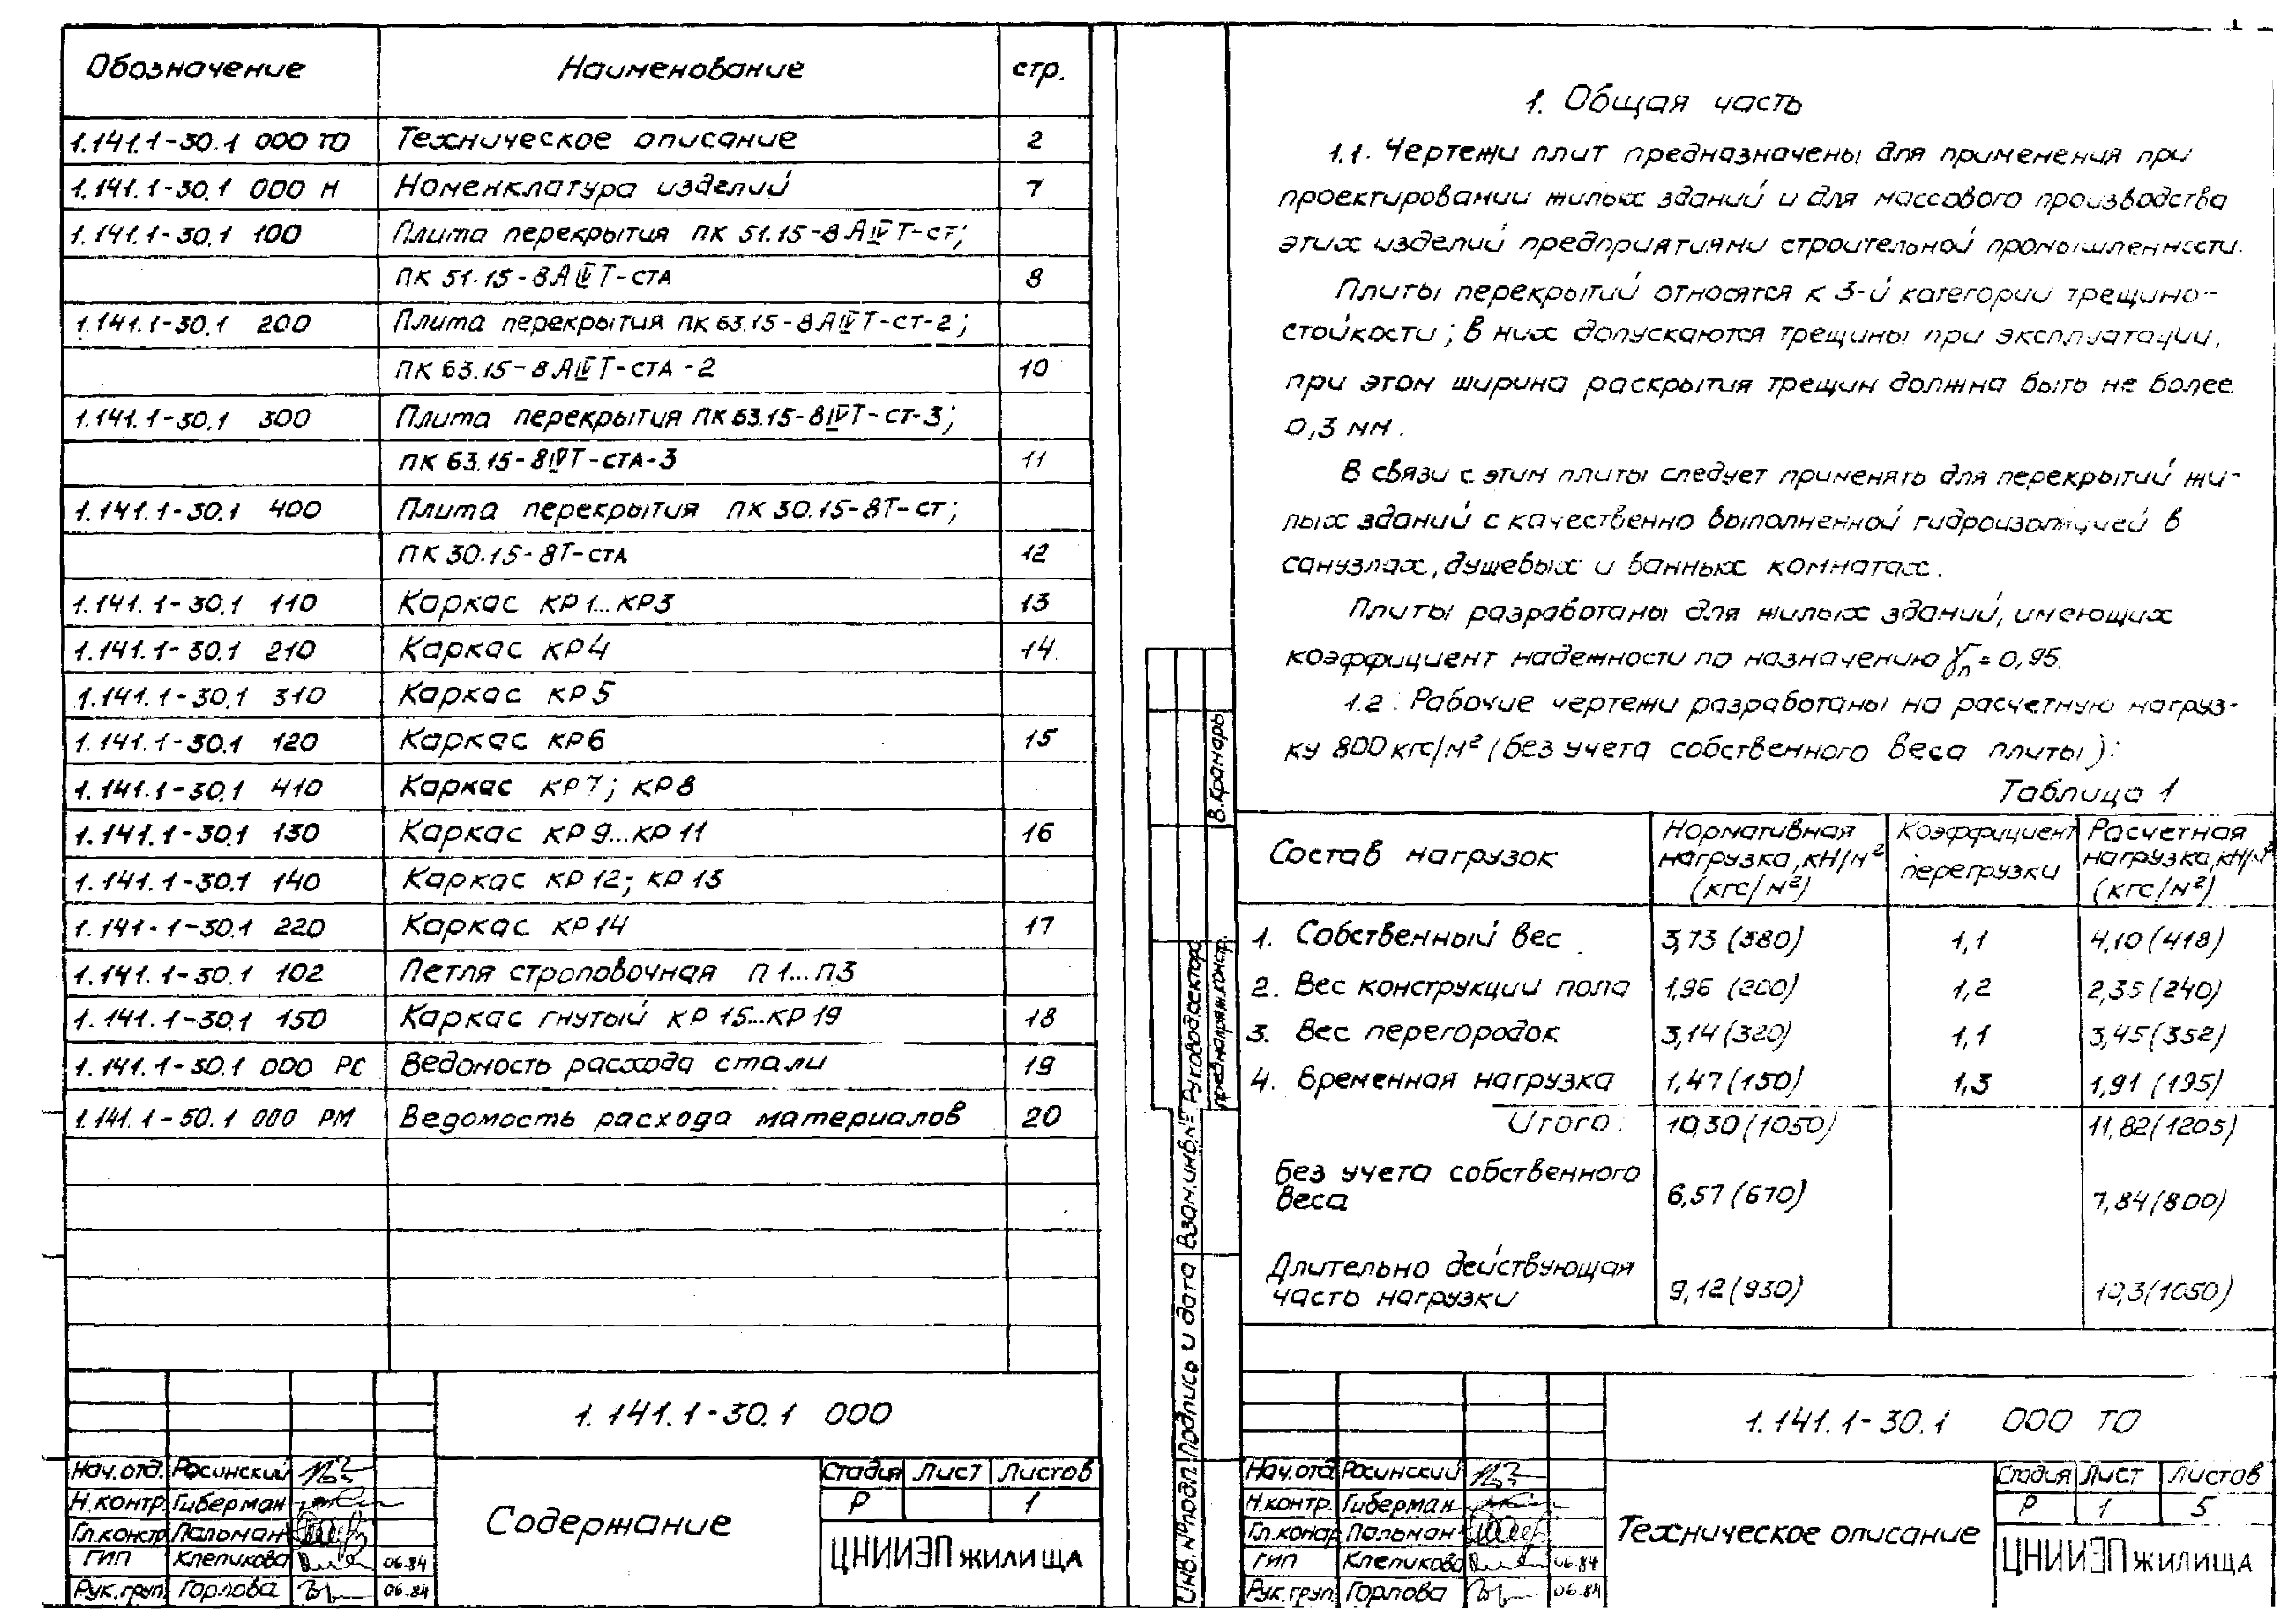 Обозначение Наименование стр.
1.141.1-30.1 000 ТО Техническое описание 2
1.141.1-30.1 000 Н Номенклатура изделий 7
1.141.1-30.1 100 Плита перекрытия ПК 51.15-8АIVТ-ст;
ПК 51.15-8АIVТ-стА 8
1.141.1-30.1 200 Плита перекрытия ПК 63.15-8АIVТ-ст-2;
ПК 63.15-8АIVТ-стА-2 10
1.141.1-30.1 300 Плита перекрытия ПК 63.15-8IVТ-ст-3;
ПК 63.15-8IVТ-стА-3 11
1.141.1-30.1 400 Плита перекрытия ПК 30.15-8Т-ст;
ПК 30.15-8Т-стА 12
1.141.1-30.1 110 Каркас КР1...КР3 13
1.141.1-30.1 210 Каркас КР4 14
1.141.1-30.1 310 Каркас КР5
1.141.1-30.1 120 Каркас КР6 15
1.141.1-30.1 410 Каркас КР7; КР8
1.141.1-30.1 130 Каркас КР9...КР11 16
1.141.1-30.1 140 Каркас КР12; КР13
1.141.1-30.1 220 Каркас КР14 17
1.141.1-30.1 102 Петля строповочная П1...П3
1.141.1-30.1 150 Каркас гнутый КР15...КР19 18
1.141.1-30.1 000 РС Ведомость расхода стали 19
1.141.1-30.1 000 РМ Ведомость расхода материалов 20
1.141.1-30.1 000
Нач.отд. Росинский
Н.контр. Гиберман
Гл.констр Пальман
ГИП Клепикова 06.84
Рук.груп. Горлова 06.84
Содержание
Стадия Лист Листов
Р 1
ЦНИИЭП жилища
Руковод.сектор
В.Крамарь
преднапряж.констр.
Инв.№подл. Подпись и дата Взам.инв.№
1. Общая часть
1.1. Чертежи плит предназначены для применения при
проектировании жилых зданий и для массового производства
этих изделий предприятиями строительной промышленности.
Плиты перекрытий относятся к 3-й категории трещино-
стойкости; в них допускаются трещины при эксплуатации,
при этом ширина раскрытия трещин должна быть не более
0,3 мм.
В связи с этим плиты следует применять для перекрытий жи-
лых зданий с качественно выполненной гидроизоляцией в
санузлах, душевых и ванных комнатах.
Плиты разработаны для жилых зданий, имеющих
коэффициент надежности по назначению γn = 0,95.
1.2. Рабочие чертежи разработаны на расчетную нагруз-
ку 800 кгс/м² (без учета собственного веса плиты):
Таблица 1
Состав нагрузок Нормативная нагрузка, кН/м² (кгс/м²) Коэффициент перегрузки Расчетная нагрузка, кН/м² (кгс/м²)
1. Собственный вес 3,73 (380) 1,1 4,10 (418)
2. Вес конструкции пола 1,96 (200) 1,2 2,35 (240)
3. Вес перегородок 3,14 (320) 1,1 3,45 (352)
4. Временная нагрузка 1,47 (150) 1,3 1,91 (195)
Итого: 10,30 (1050) 11,82 (1205)
Без учета собственного
веса 6,57 (670) 7,84 (800)
Длительно действующая
часть нагрузки 9,12 (930) 10,3 (1050)
1.141.1-30.1 000 ТО
Нач.отд Росинский
Н.контр. Гиберман
Гл.констр Пальман
ГИП Клепикова 06.84
Рук.груп. Горлова 06.84
Техническое описание
Стадия Лист Листов
Р 1 5
ЦНИИЭП жилища